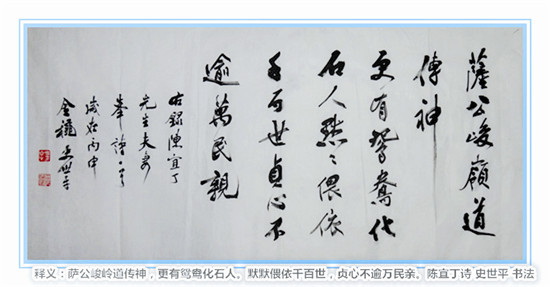 薩公峻嶺道
傳神
更有鴛鴦化
石人默〻偎依
千百世貞心不
逾萬民親
右録陳宜丁
先生夫妻
峯詩一首
歲在丙申
史世平
释义：萨公峻岭道传神，更有鸳鸯化石人。默默偎依千百世，贞心不逾万民亲。陈宜丁诗 史世平 书法